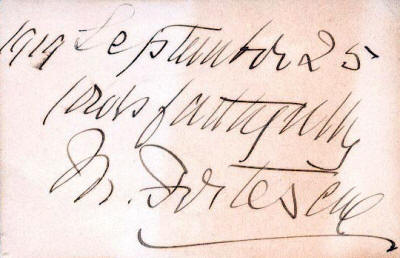 1919 September 25
yours faithfully
M. Fortescue